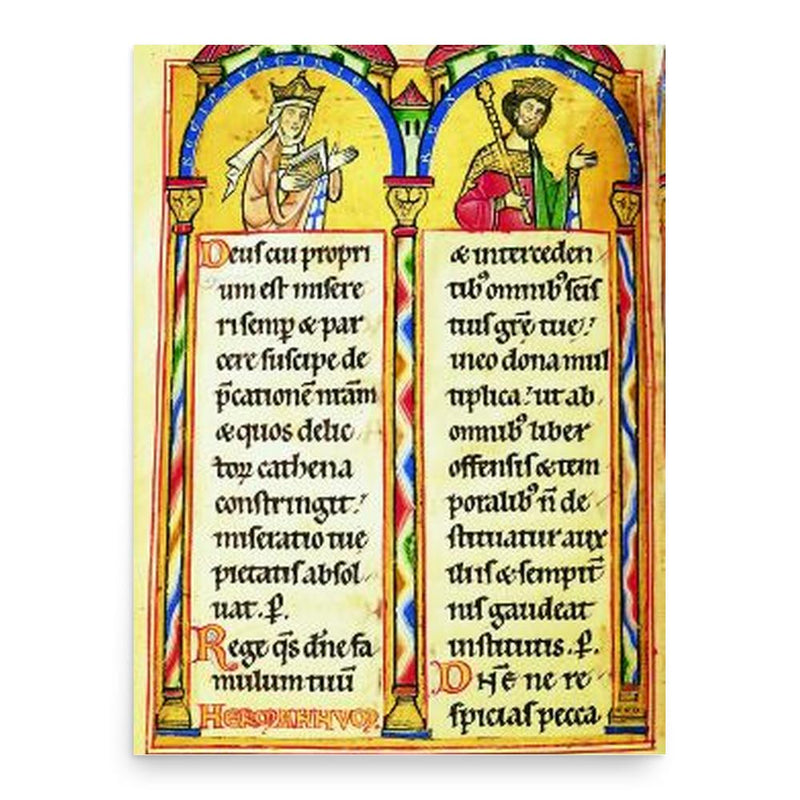 REGINA VNGARIE
REX VNGARIE
Deuſ cui propri
um est miſere
ri ſemꝑ & par
cere ſuſcipe de
p̄cationē nr̄am
& quos delic
toꝝ cathena
conſtringit.
miſeratio tue
pietatiſ abſol
uat. P̱.
Rege q̄s dn̄e fa
mulum tuū
HERMANNVM
& interceden
tibꝰ omnibꝰ ſcīſ
tuiſ grē tue.
in eo dona mul
tiplica. ut ab
omnibꝰ liber
offenſiſ & tem
poralibꝰ ñ de
ſtituatur aux
iliiſ & ſempit̄
niſ gaudeat
inſtitutis. P̱.
DN̄E ne re
ſpiciaſ pecca